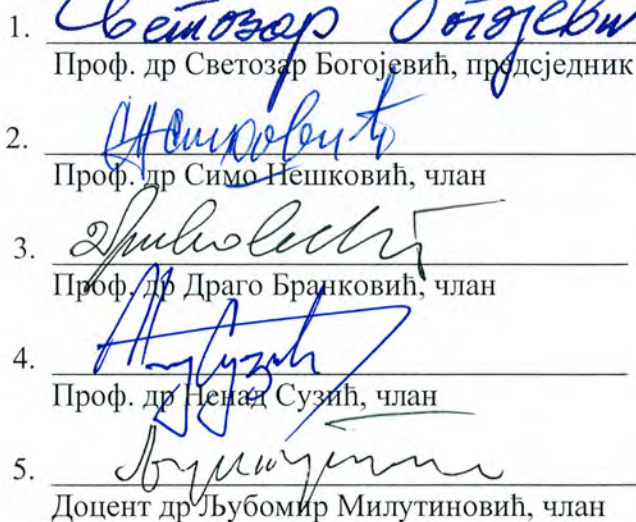 1. Светозар Богојевић
Проф. др Светозар Богојевић, предсједник
2.
Проф. др Симо Нешковић, члан
3.
Проф. др Драго Бранковић, члан
4.
Проф. др Ненад Сузић, члан
5.
Доцент др Љубомир Милутиновић, члан